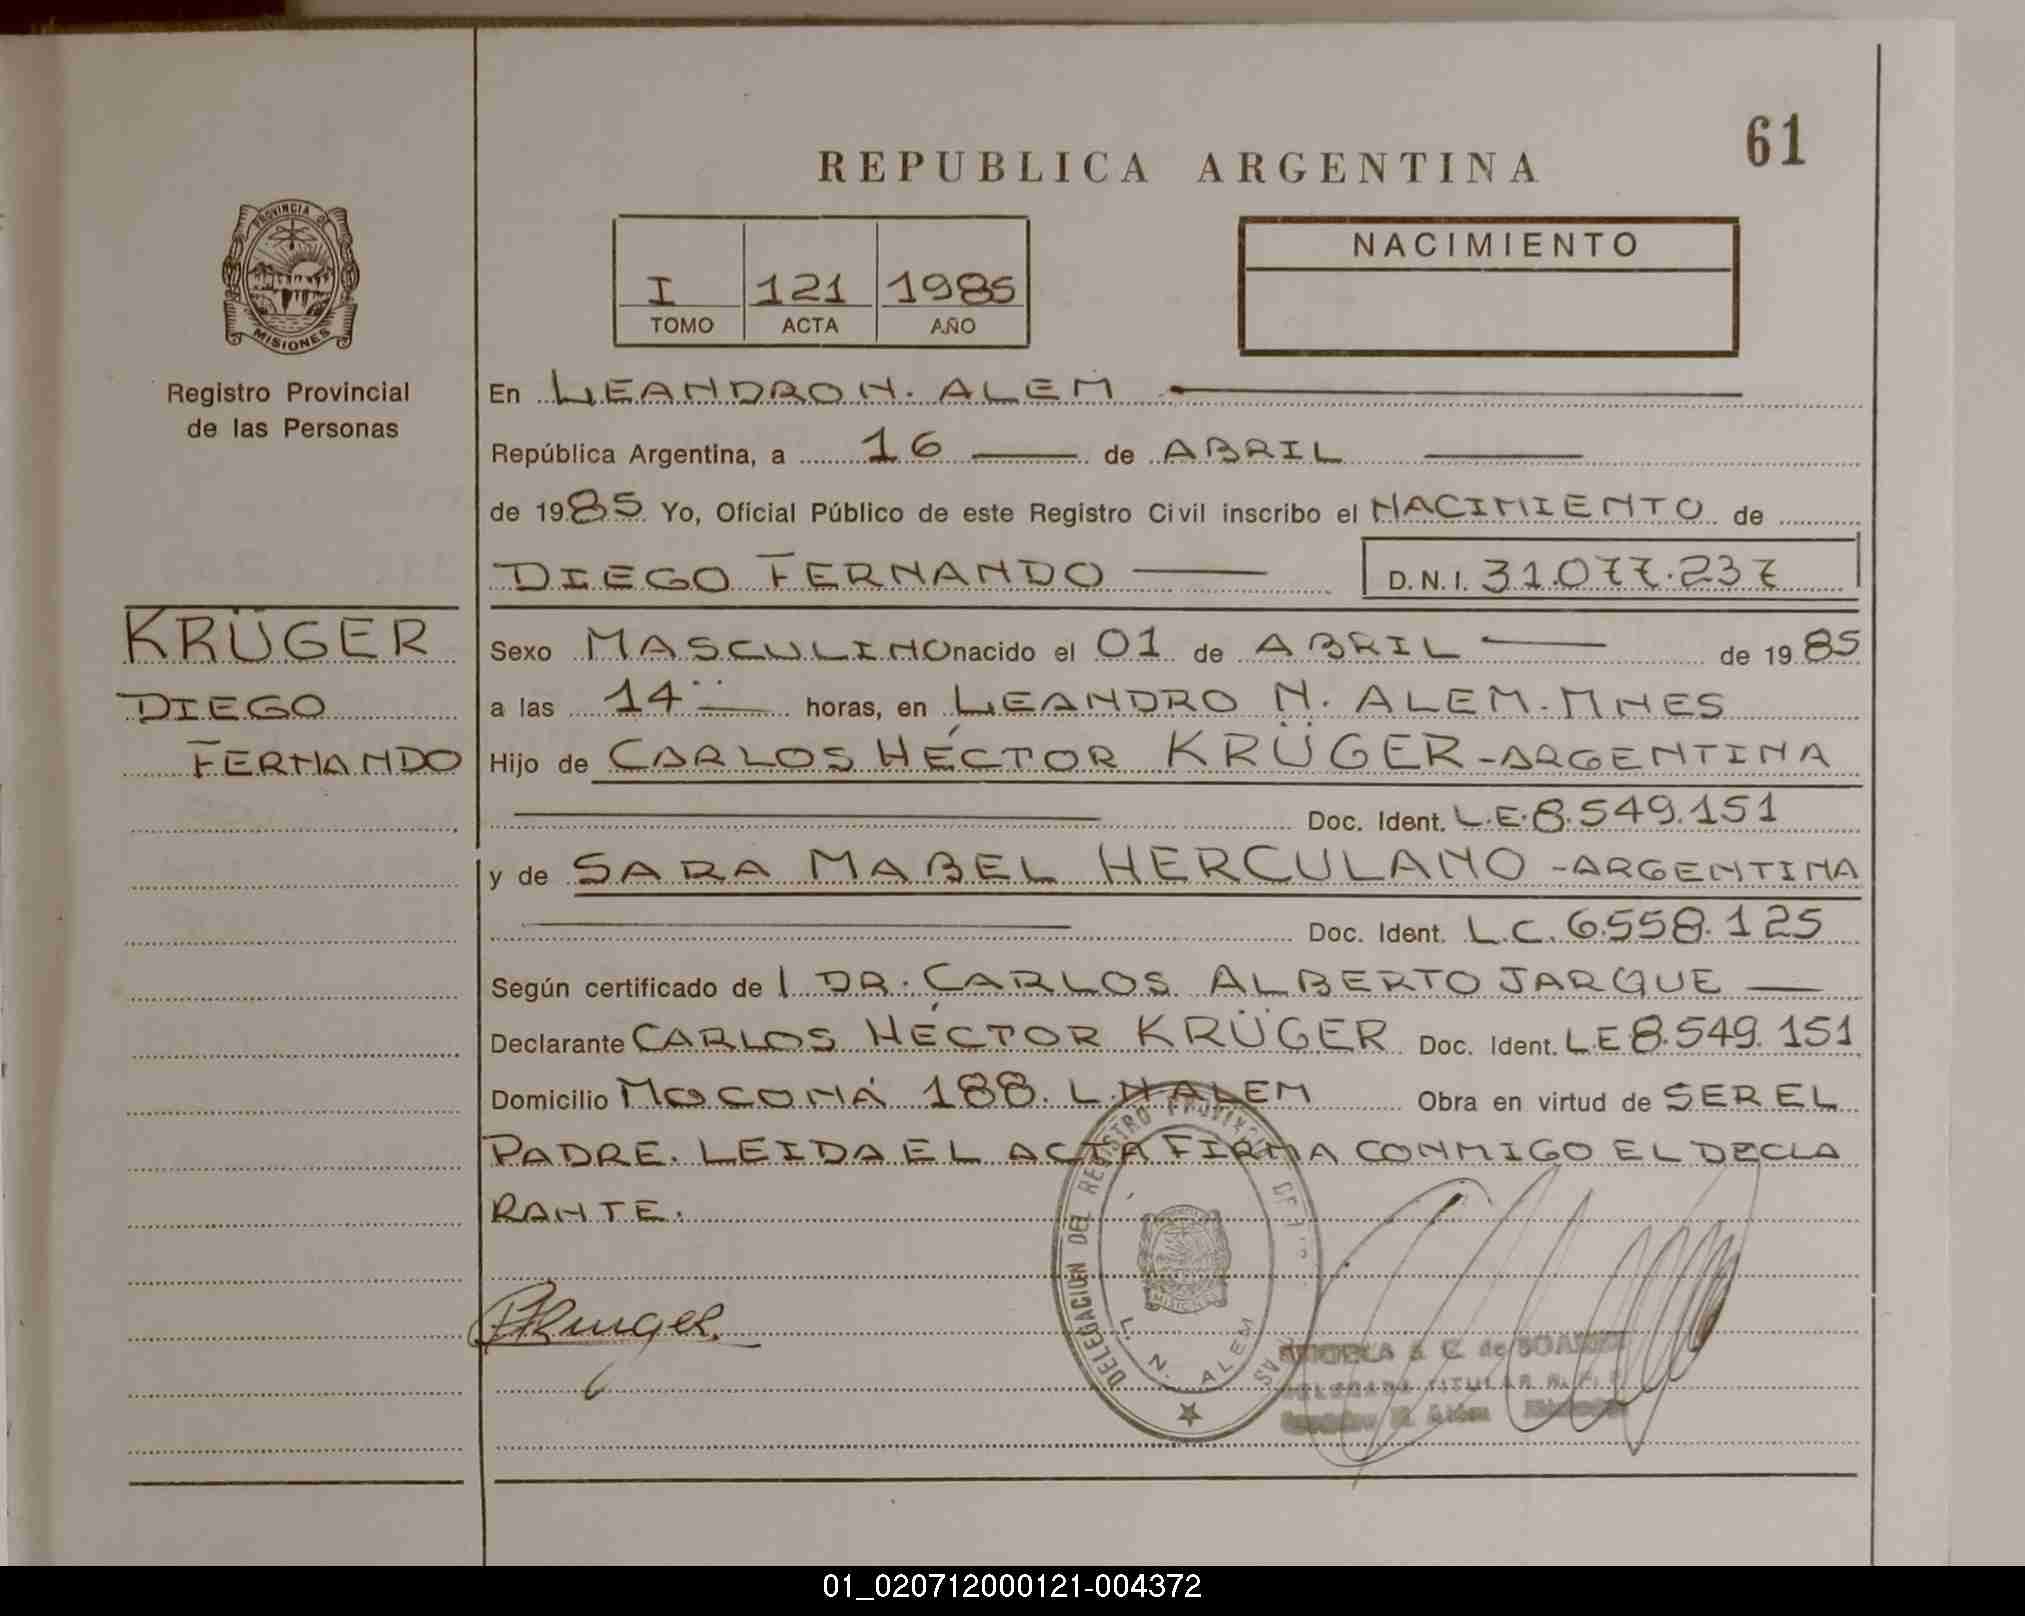 61
REPUBLICA ARGENTINA
PROVINCIA DE
MISIONES
Registro Provincial
de las Personas
I 121 1985
TOMO ACTA AÑO
NACIMIENTO
En LEANDRO N. ALEM
República Argentina, a 16 de ABRIL
de 1985 Yo, Oficial Público de este Registro Civil inscribo el NACIMIENTO de
DIEGO FERNANDO D.N.I. 31.077.237
KRÜGER
DIEGO
FERNANDO
Sexo MASCULINO nacido el 01 de ABRIL de 1985
a las 14 horas, en LEANDRO N. ALEM. MNES
Hijo de CARLOS HÉCTOR KRÜGER - ARGENTINA
Doc. Ident. L.E. 8.549.151
y de SARA MABEL HERCULANO - ARGENTINA
Doc. Ident. L.C. 6.558.125
Según certificado de l DR. CARLOS ALBERTO JARQUE
Declarante CARLOS HÉCTOR KRÜGER Doc. Ident. L.E 8.549.151
Domicilio MOCONÁ 188. L.N ALEM Obra en virtud de SER EL
PADRE. LEIDA EL ACTA FIRMA CONMIGO EL DECLA
RANTE.
DELEGACION DEL REGISTRO PROVINCIAL DE
L. N. ALEM
MISIONES
de SOAREZ
DELEGADA TITULAR R. P. P.
01_020712000121-004372